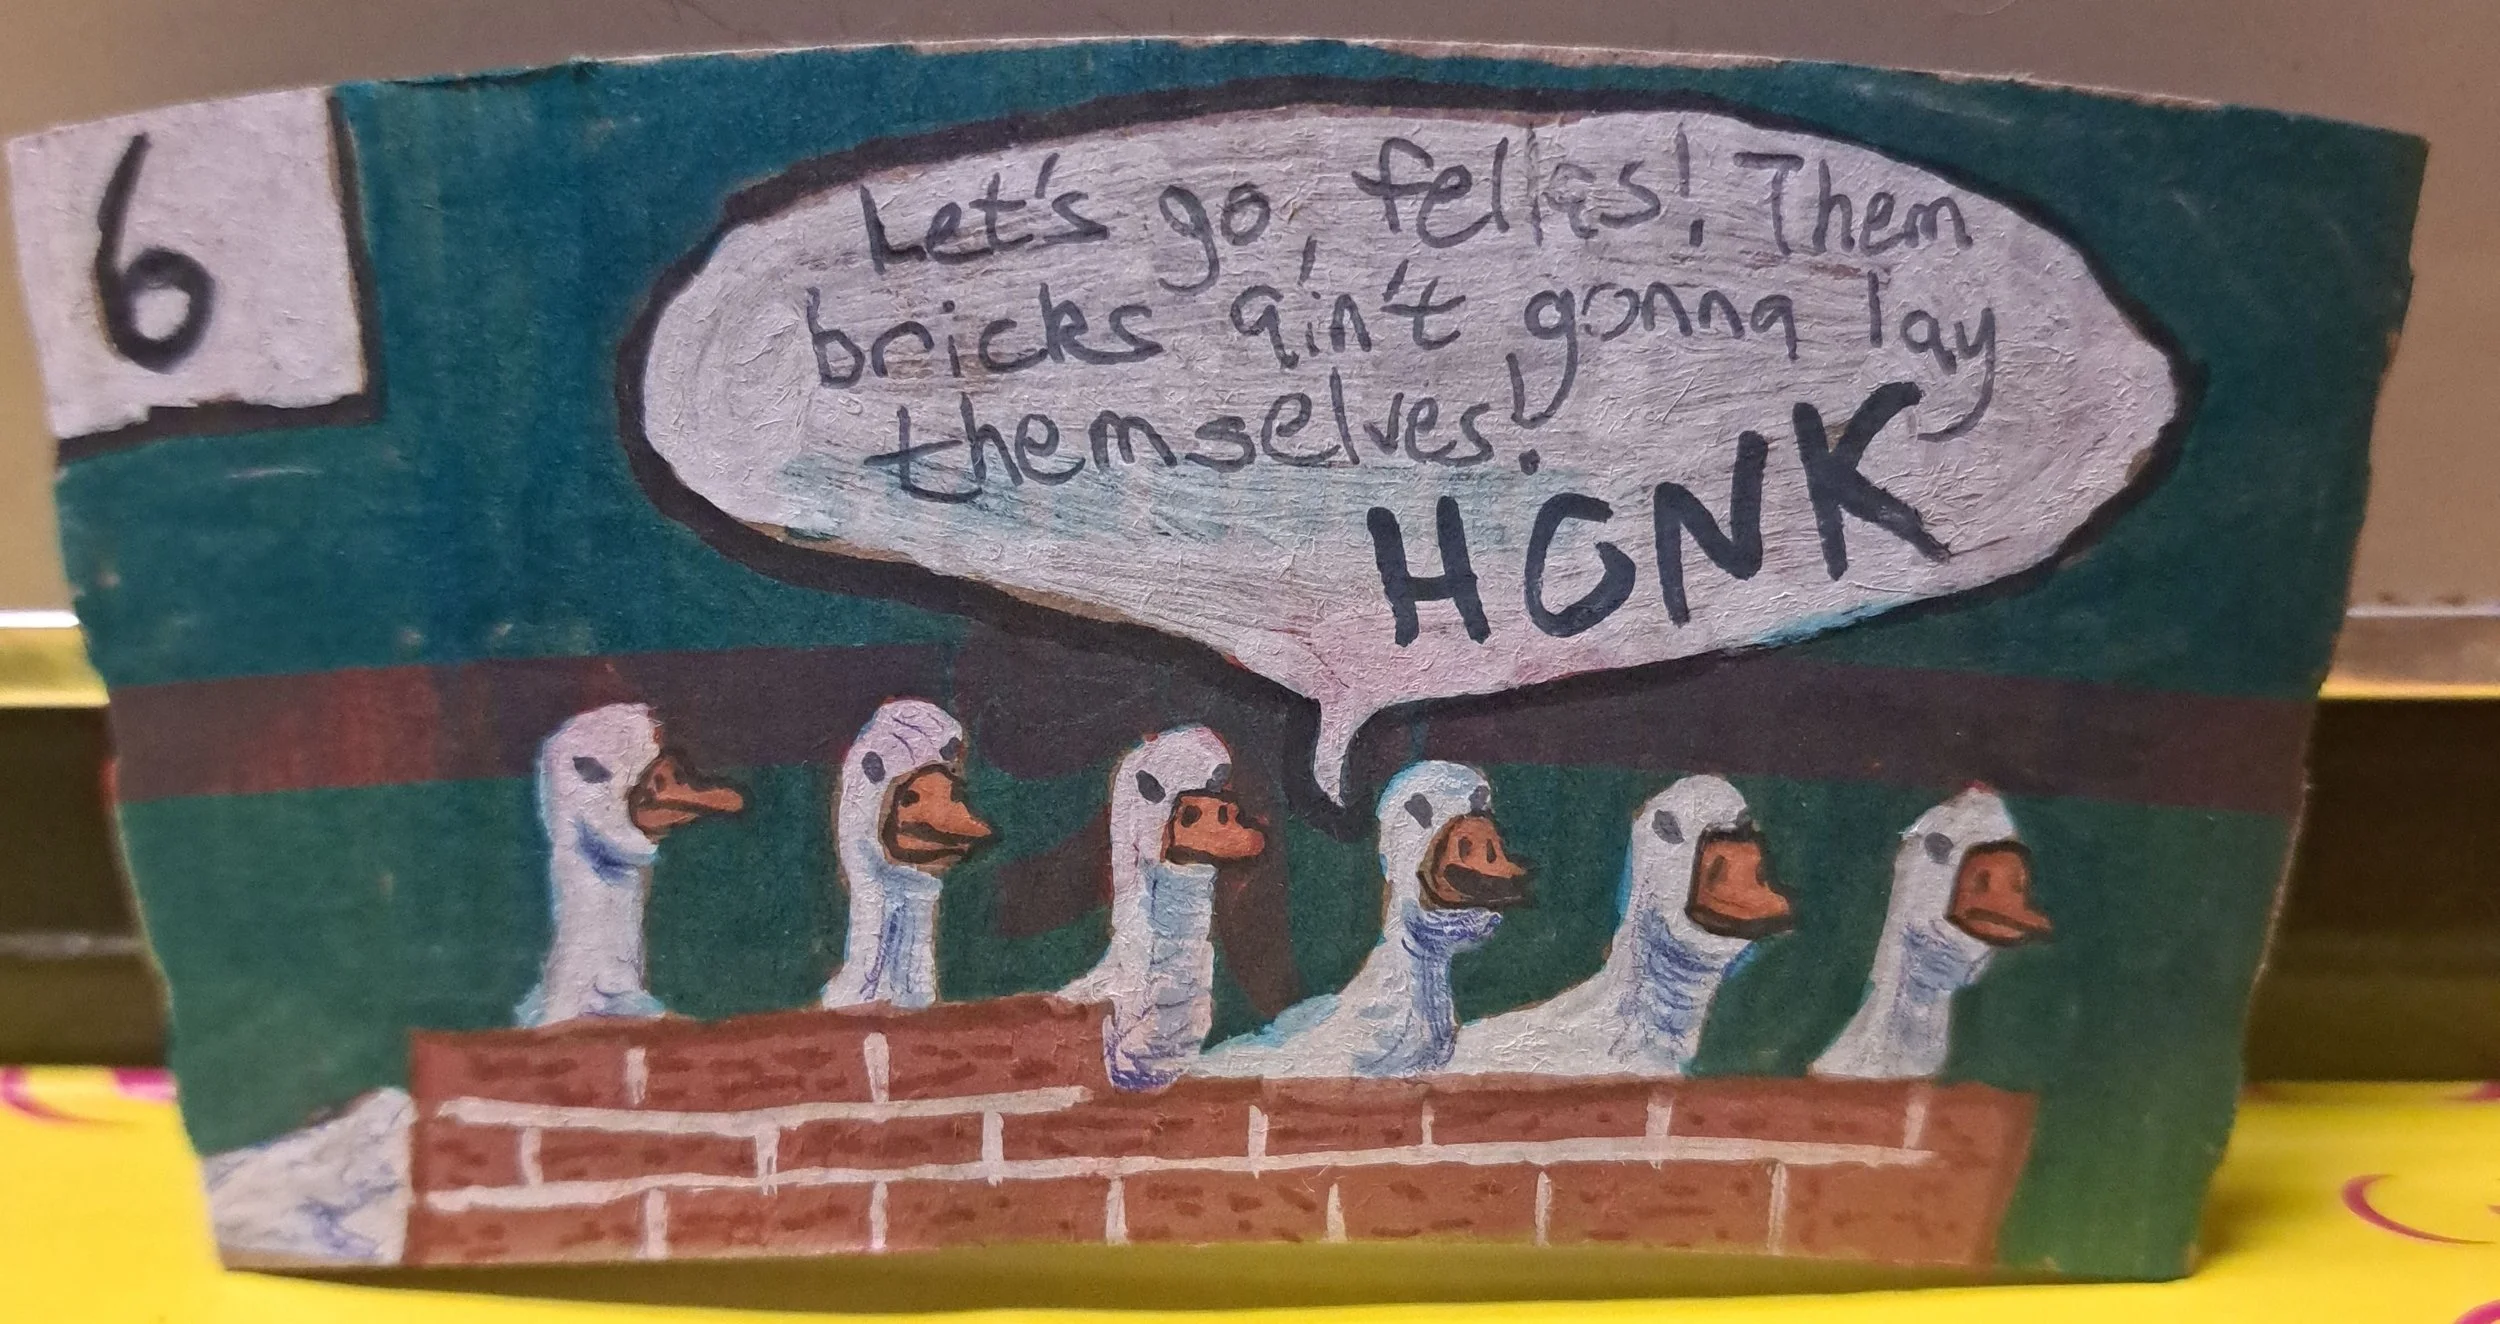 6
Let's go, fellas! Them
bricks ain't gonna lay
themselves!
HONK